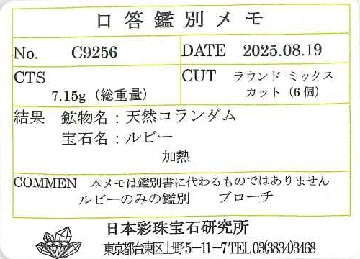 口答鑑別メモ
No. C9256 DATE 2025.08.19
CTS 7.15g (総重量) CUT ラウンド ミックス カット (6個)
結果 鉱物名：天然コランダム
宝石名：ルビー
加熱
COMMEN 本メモは鑑別書に代わるものではありません
ルビーのみの鑑別 ブローチ
日本彩珠宝石研究所
東京都台東区上野5-11-7 TEL 03(3834)3468